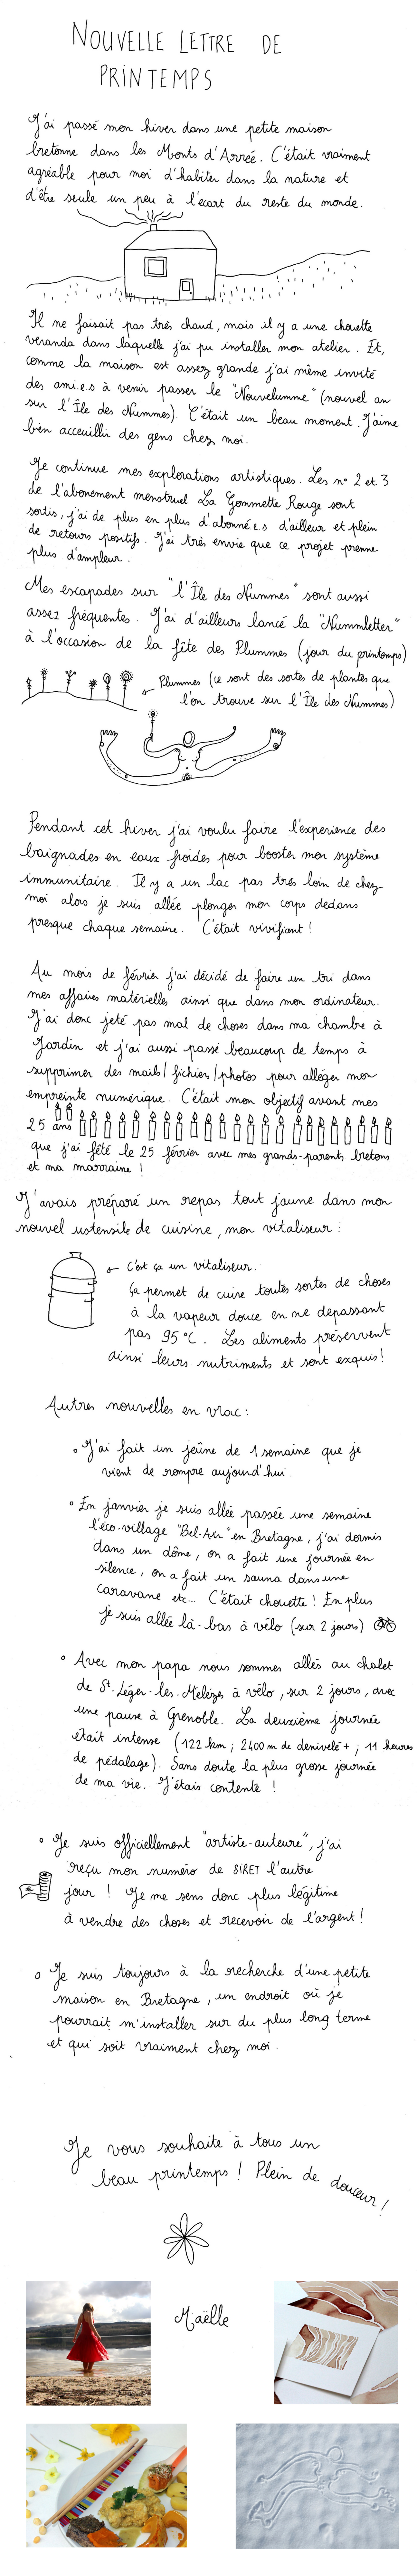 NOUVELLE LETTRE DE
PRINTEMPS
J'ai passé mon hiver dans une petite maison
bretonne dans les Monts d'Arrée. C'était vraiment
agréable pour moi d'habiter dans la nature et
d'être seule un peu à l'écart du reste du monde.
Il ne faisait pas très chaud, mais il y a une chouette
veranda dans laquelle j'ai pu installer mon atelier. Et,
comme la maison est assez grande j'ai même invité
des ami.e.s à venir passer le "Nouvelumme" (nouvel an
sur l'Île des Nummes). C'était un beau moment. J'aime
bien acceuillir des gens chez moi.
Je continue mes explorations artistiques. Les n° 2 et 3
de l'abonement menstruel La Gommette Rouge sont
sortis, j'ai de plus en plus d'abonné.e.s d'ailleur et plein
de retours positifs. J'ai très envie que ce projet prenne
plus d'ampleur.
Mes escapades sur "l'Île des Nummes" sont aussi
assez fréquentes. J'ai d'ailleurs lancé la "Nummletter"
à l'occasion de la fête des Plummes (jour du printemps)
Plummes (ce sont des sortes de plantes que
l'on trouve sur l'Île des Nummes)
Pendant cet hiver j'ai voulu faire l'experience des
baignades en eaux froides pour booster mon système
immunitaire. Il y a un lac pas très loin de chez
moi alors je suis allée plonger mon corps dedans
presque chaque semaine. C'était vivifiant !
Au mois de février j'ai décidé de faire un tri dans
mes affaires matérielles ainsi que dans mon ordinateur.
J'ai donc jeté pas mal de choses dans ma chambre à
Jardin et j'ai aussi passé beaucoup de temps à
supprimer des mails/fichiers/photos pour alléger mon
empreinte numérique. C'était mon objectif avant mes
25 ans
que j'ai fêté le 25 février avec mes grands-parents bretons
et ma marraine !
J'avais préparé un repas tout jaune dans mon
nouvel ustensile de cuisine, mon vitaliseur :
C'est ça un vitaliseur.
ça permet de cuire toutes sortes de choses
à la vapeur douce en ne depassant
pas 95°C. Les aliments préservent
ainsi leurs nutriments et sont exquis!
Autres nouvelles en vrac :
J'ai fait un jeûne de 1 semaine que je
vient de rompre aujourd'hui.
En janvier je suis allée passée une semaine
l'éco-village "Bel-Air" en Bretagne, j'ai dormis
dans un dôme, on a fait une journée en
silence, on a fait un sauna dans une
caravane etc... C'était chouette ! En plus
je suis allée là-bas à vélo (sur 2 jours)
Avec mon papa nous sommes allés au chalet
de St-Léger-les-Mélèzes à vélo, sur 2 jours, avec
une pause à Grenoble. La deuxième journée
était intense (122 km ; 2400 m de denivelé + ; 11 heures
de pédalage). Sans doute la plus grosse journée
de ma vie. J'étais contente !
Je suis officiellement "artiste-auteure", j'ai
reçu mon numéro de SIRET l'autre
jour ! Je me sens donc plus légitime
à vendre des choses et recevoir de l'argent !
€
Je suis toujours à la recherche d'une petite
maison en Bretagne, un endroit où je
pourrait m'installer sur du plus long terme
et qui soit vraiment chez moi.
Je vous souhaite à tous un
beau printemps ! Plein de douceur !
Maëlle